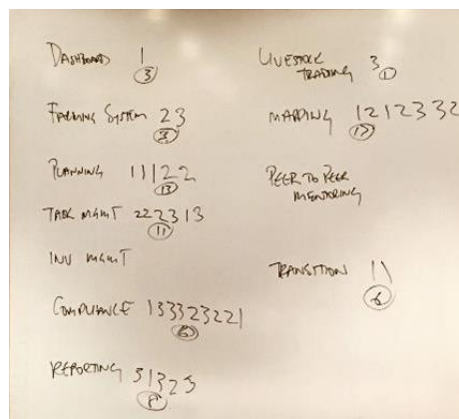 DASHBOARD 1
3
FARMING SYSTEM 23
3
PLANNING 11122
13
TASK MGMT 222313
11
INV MGMT
COMPLIANCE 133323221
REPORTING 31323
8
LIVESTOCK
TRADING 3
1
MAPPING 1212332
PEER TO PEER
MENTORING
TRANSITION 11
6